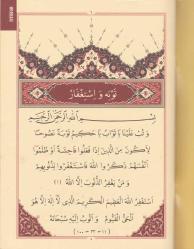 توبه و استغفار
بِسْمِ اللّٰهِ الرَّحْمٰنِ الرَّحِيمِ
وَ تُبْ عَلَيْنَا يَا تَوَّابُ يَا حَكِيمُ تَوْبَةً نَصُوحًا
الَّذِينَ إِذَا فَعَلُوا فَاحِشَةً أَوْ ظَلَمُوا
أَنْفُسَهُمْ ذَكَرُوا اللّٰهَ فَاسْتَغْفَرُوا لِذُنُوبِهِمْ
وَ مَنْ يَغْفِرُ الذُّنُوبَ إِلَّا اللّٰهُ (١)
اَسْتَغْفِرُ اللّٰهَ الْعَظِيمَ الْكَرِيمَ الَّذِي لَا إِلٰهَ إِلَّا هُوَ
الْحَيُّ الْقَيُّومُ وَ أَتُوبُ إِلَيْهِ سُبْحَانَهُ